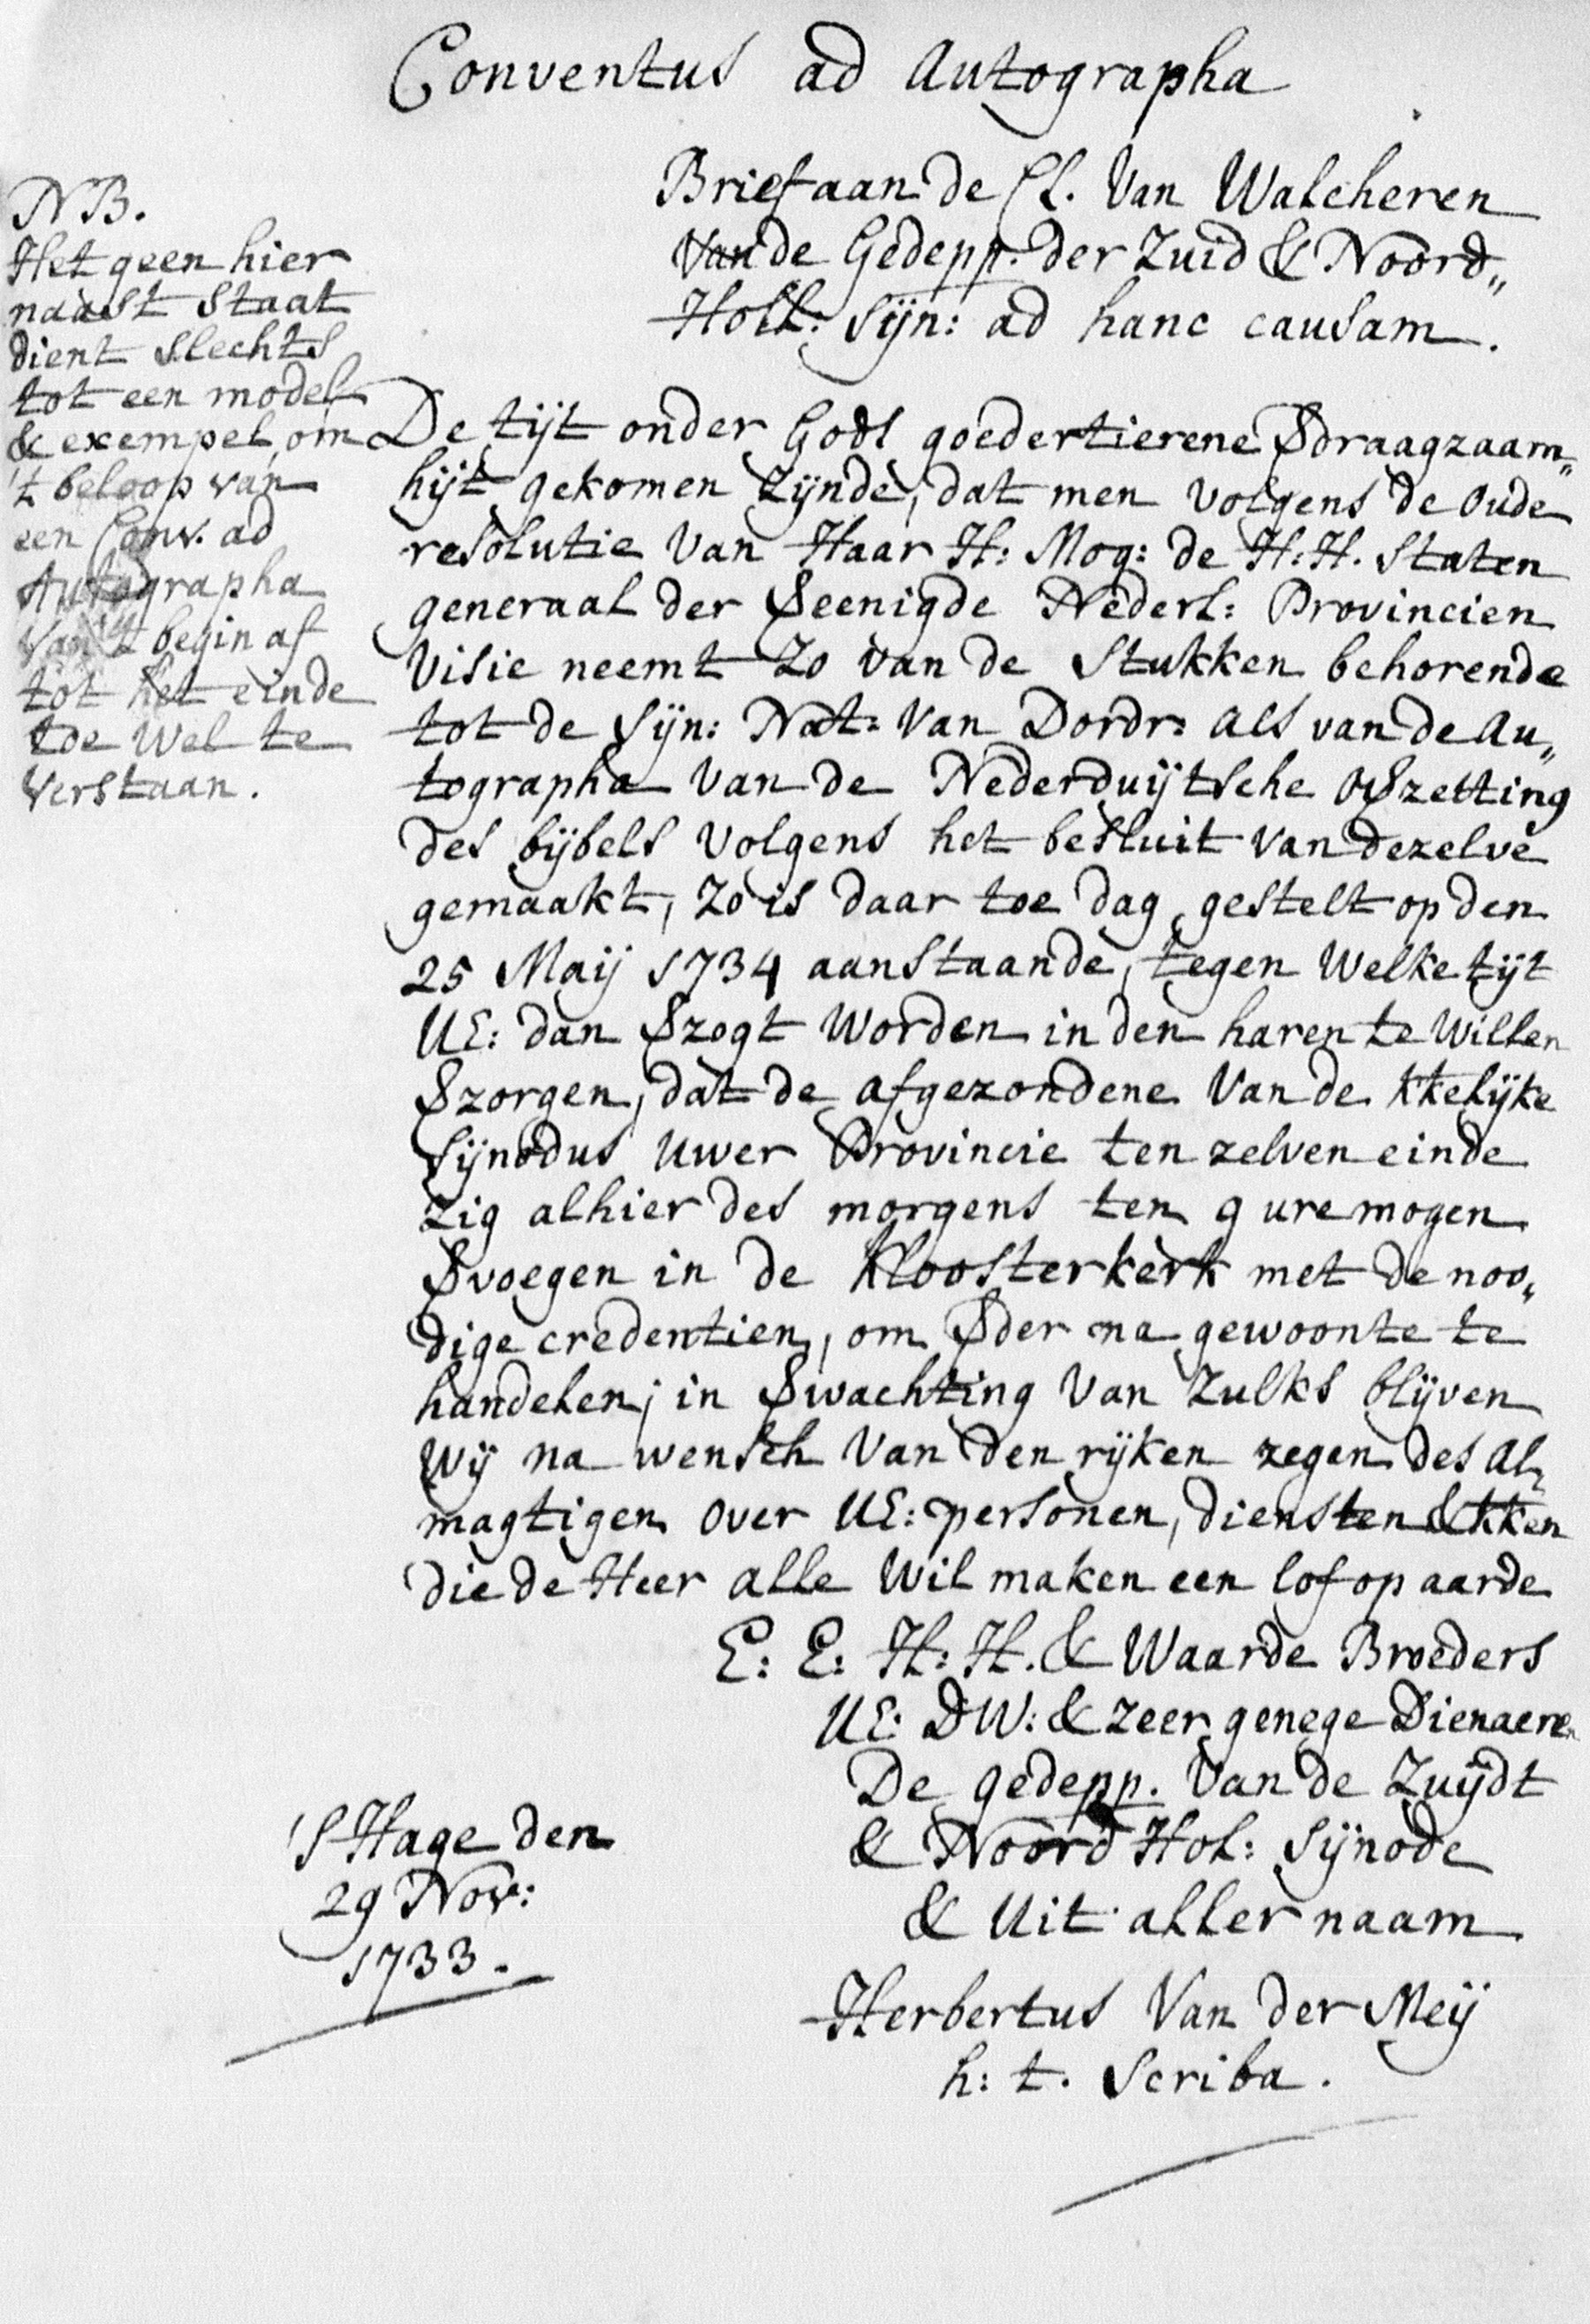 Conventus ad Autographa
Brief aan de Cl. Van Walcheren
Van de Gedepp. der Zuid & Noord„
Holl: Sijn: ad hanc causam.
NB.
Het geen hier
naast Staat
dient Slechts
tot een model
& exempel, om
't beloop van
een Conv. ad
Autographa
Van 't begin af
tot het einde
toe Wel te
Verstaan.
De tijt onder Gods goedertierene Vdraagzaam„
hijt gekomen Zijnde, dat men volgens de oude
resolutie Van Haar H: Mog: de H:H. Staten
generaal der Veenigde Nederl: Provincien
Visie neemt Zo van de Stukken behorende
tot de Sijn: Nat: Van Dordr: als van de Au„
tographa Van de Nederduijtsche OVzetting
des bijbels Volgens het besluit Van dezelve
gemaakt, Zo is daar toe dag gestelt op den
25 Maij 1734 aanstaande, tegen Welke tijt
UE: dan Vzogt Worden in den haren te Willen
Vzorgen, dat de afgezondene Van de kkelijke
Sijnodus Uwer Provincie ten zelven einde
Zig alhier des morgens ten 9 ure mogen
Vvoegen in de Kloosterkerk met de noo„
dige credentien, om Vder na gewoonte te
handelen; in Vwachting Van Zulks blijven
Wij na wensch Van den rijken zegen des Al„
magtigen over UE: personen, diensten & kken
die de Heer alle Wil maken een lof op aarde
E: E: H: H. & Waarde Broeders
UE: DW: & zeer genege Dienaeren
De gedepp. Van de Zuijdt
& Noord Hol: Sijnode
& Uit aller naam
Herbertus Van der Meij
h: t. Scriba.
'S Hage den
29 Nov:
1733.